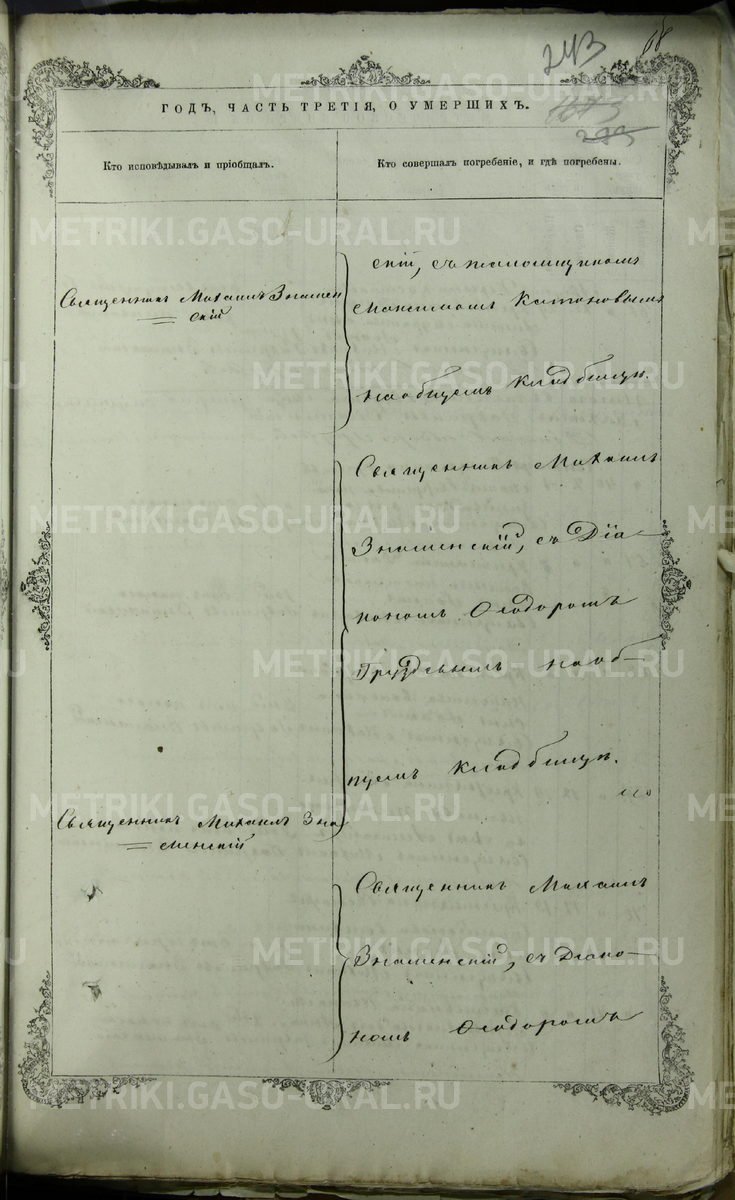 243
68
ГОДЪ, ЧАСТЬ ТРЕТІЯ, О УМЕРШИХЪ.
Кто исповѣдывалъ и пріобщалъ.
Кто совершалъ погребеніе, и гдѣ погребены.
Священникъ Михаилъ Знамен
скій
скій, съ
Максимомъ
на общемъ кладбищѣ.
Священникъ Михаилъ
Знаменскій, съ Діа
кономъ Ѳеодоромъ
Груздевымъ на об-
щемъ кладбищѣ.
Священникъ Михаилъ Зна
менскій
Священникъ Михаилъ
Знаменскій, съ Діако-
номъ Ѳеодоромъ
METRIKI.GASO-URAL.RU